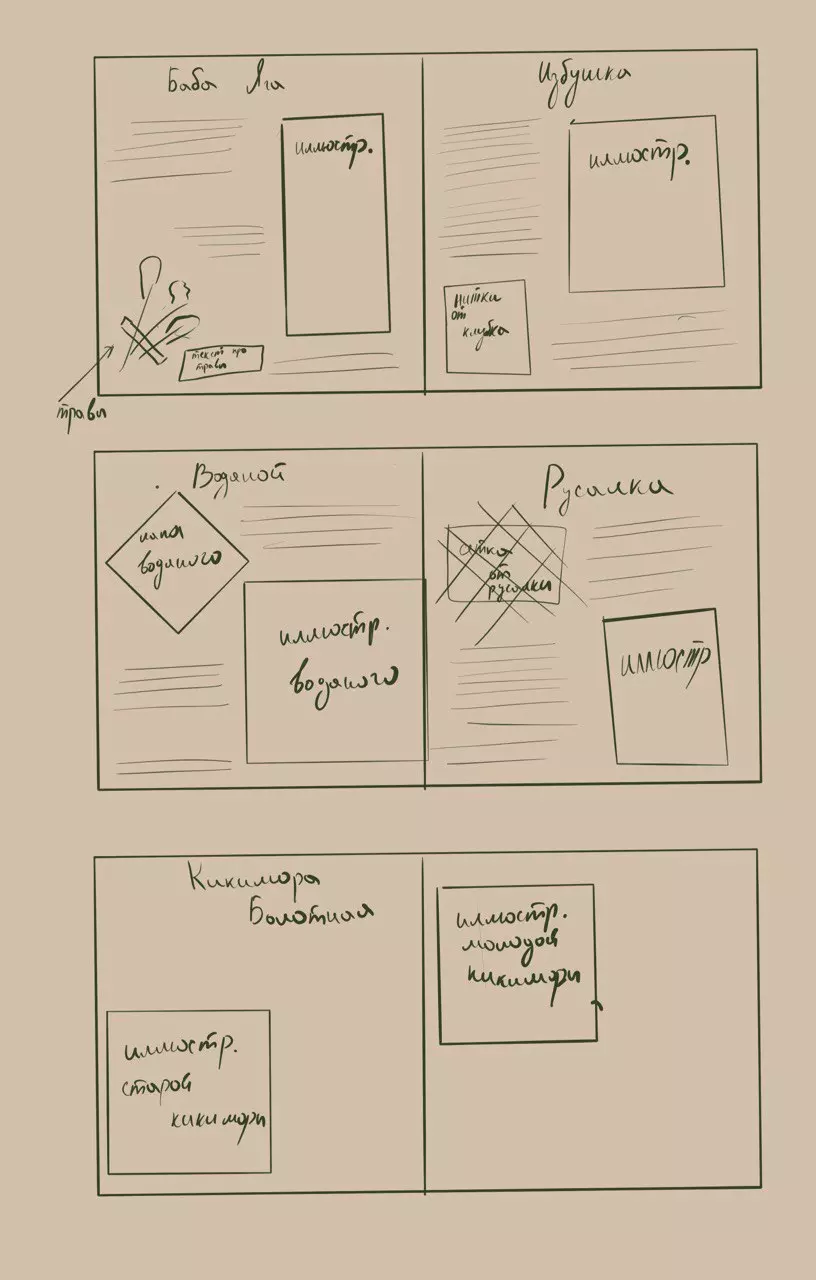 Баба Яга
иллюстр.
текст про
травы
травы
Избушка
иллюстр.
Нитки
от
клубка
Водяной
лапа
водяного
иллюстр.
водяного
Русалка
от
русалки
иллюстр
Кикимора
Болотная
иллюстр.
старой
кикиморы
иллюстр.
молодой
кикиморы